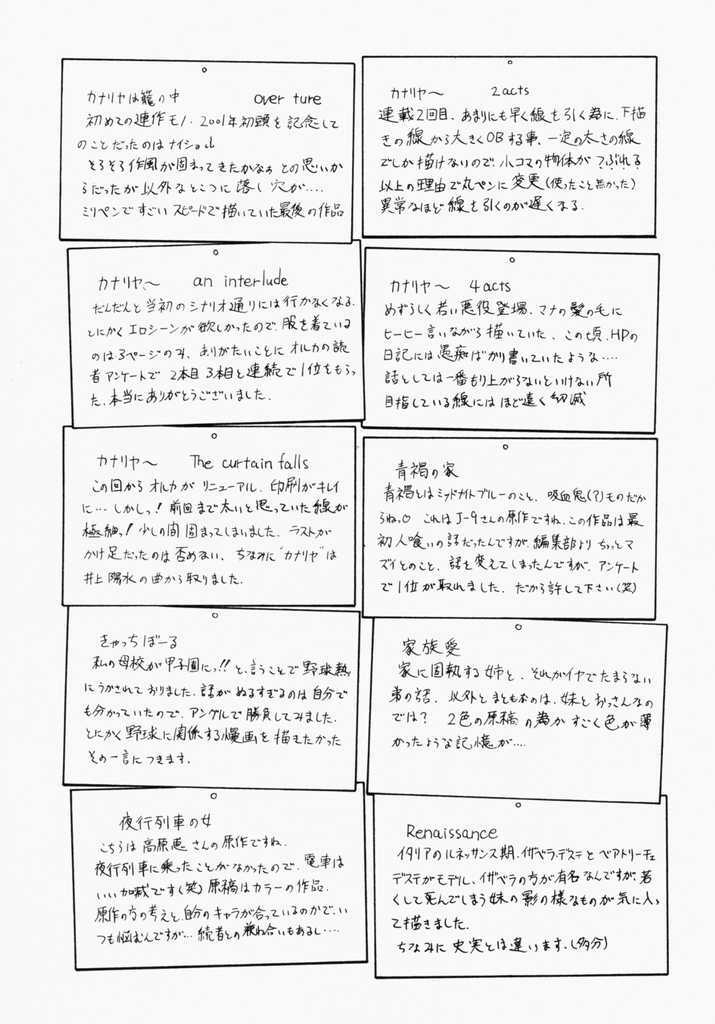 カナリヤは籠の中 over ture
初めての連作モノ・2001年初頭を記念して
のことだったのはナイショ。
そろそろ作風が固まってきたかなぁ との思いか
らだったが以外なところに落し穴が‥‥
ミリペンですごいスピードで描いていた最後の作品
カナリヤ〜 2acts
連載2回目、あまりにも早く線を引く為に、下描
きの線から大きくOBする事、一定の太さの線
でしか描けないので、小コマの物体がつぶれる
以上の理由で丸ペンに変更(使ったこと無かった)
異常なほど線を引くのが遅くなる.
カナリヤ、〜 an interlude
だんだんと当初のシナリオ通りには行かなくなる.
とにかくエロシーンが欲しかったので、服を着ている
のは3ページのみ、ありがたいことにオルカの読
者アンケートで 2本目 3本目と連続で1位をもらっ
た、本当にありがとうございました.
カナリヤ〜 4acts
めずらしく若い悪役登場、マナの髪の毛に
ヒーヒー言いながら描いていた、この頃、HPの
日記には愚痴ばかり書いていたような‥‥
話としては一番もり上がらないといけない所
目指している線にはほど遠く幻滅
カナリヤ〜 The curtain falls
この回からオルカが リニューアル、印刷がキレイ
に… しかしっ! 前回まで太いと思っていた線が
極細っ! 少しの間 固まってしまいました、ラストが
かけ足だったのは否めない、ちなみに"カナリヤ"は
井上陽水の曲から取りました.
青褐の家
青褐とはミッドナイトブルーのこと、吸血鬼(?)ものだか
らね. これはJ-9さんの原作ですね、この作品は最
初人喰いの話だったんですが、編集部よりちょっとマ
ズイとのこと、話を変えてしまったんですが、アンケート
で1位が取れました、だから許して下さい(笑)
きゃっちぼーる
私の母校が甲子園にっ!! と、言うことで野球熱
にうかされておりました、話がぬるすぎるのは自分で
も分かっていたので、アングルで勝負してみました.
とにかく野球に関係する漫画を描きたかった
その一言につきます.
家族愛
家に固執する姉と、それがイヤでたまらない
弟の話、以外とまともなのは、妹とおっさんなの
では? 2色の原稿の為か すごく色が薄
かったような記憶が‥‥
夜行列車の女
こちらは 高原恵さんの原作ですね.
夜行列車に乗ったことがなかったので、電車は
いい加減です(笑) 原稿はカラーの作品.
原作の方の考えと、自分のキャラが合っているのかで、い
つも悩むんですが… 読者との兼ね合いもあるし‥‥
Renaissance
イタリアのルネッサンス期、イザベラ・デステと ベアトリーチェ
デステがモデル、イザベラの方が有名なんですが、若
くして死んでしまう妹の影の様なものが気に入っ
て描きました.
ちなみに 史実とは違います.(多分)